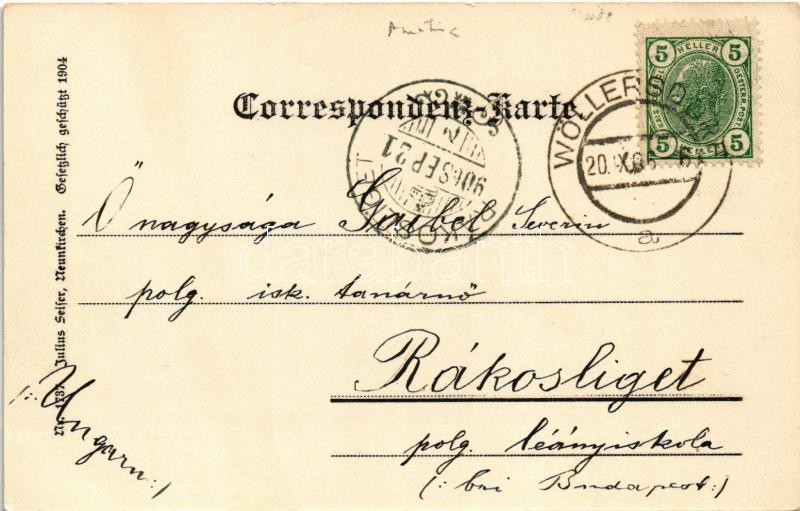 Austria
Correspondenz-Karte
5 HELLER 5
5 HELLER 5
WÖLLERSDORF
20.IX.06
a
RÁKOSLIGET
906 SEP 21
Ő nagysága Gaibel Severin
polg. isk. tanárnő
Rákosliget
polg. leányiskola
(: bei Budapest :)
(: Ungarn :)
Nr. 1737. Julius Seiser, Neunkirchen. Gesetzlich geschützt 1904
darabanth